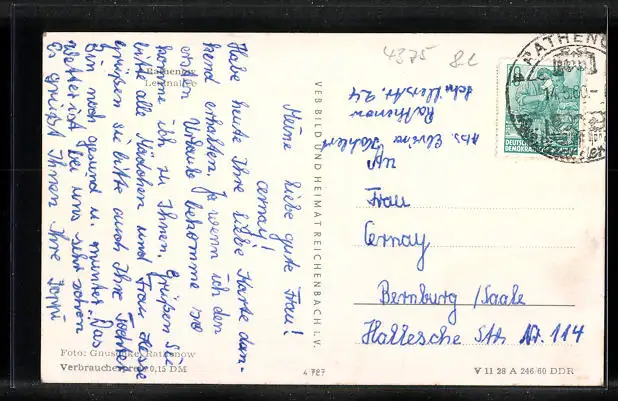 4375
82
RATHENOW
17.5.60.-
DEUTSCHE
DEMOKRAT
Abs. Elvira Kahlert
Rathenow
Schillerstr. 24
An
Frau
Cernay
Bernburg /Saale
Hallesche Str. Nr. 114
VEB BILD UND HEIMAT REICHENBACH I. V.
Rathenow
Meine liebe gute Frau
Cernay!
Habe heute Ihre liebe Karte dan-
kend erhalten. Ja wenn ich den
ersten Urlaub bekomme so
komme ich zu Ihnen. Grüßen Sie
bitte alle Mädchen und Frau Hesse
grüßen sie bitte auch Ihre Tochter
Bin noch gesund u. munter. Das
Wetter ist bei uns sehr schön
Es grüßt Ihnen Ihre
Foto: Rathenow
Verbraucherpreis 0,15 DM
4787
V 11 28 A 246/60 DDR